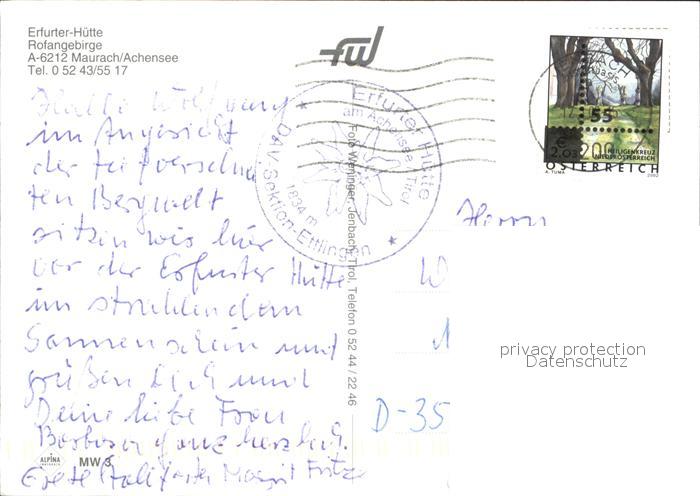 Erfurter-Hütte
Rofangebirge
A-6212 Maurach/Achensee
Tel. 0 52 43/55 17
fwj
Hallo Wolfgang
im Angesicht
der tiefverschnei
ten Bergwelt
sitzen wir hier
vor der Erfurter Hütte
im strahlendem
Sonnenschein und
grüßen Dich und
Deine liebe Frau
Barbara ganz herzlich.
Margit Fritz
ALPINA
MW 3
Erfurter Hütte
am Achensee, Tirol
1834 m
DAV. Sektion-Ettlingen
Foto Weninger, Jenbach, Tirol, Telefon 0 52 44 / 22 46
55
€ 2.03
HEILIGENKREUZ
NIEDERÖSTERREICH
ÖSTERREICH
A. TUMA
2002
Herrn
W
D-35
privacy protection
Datenschutz